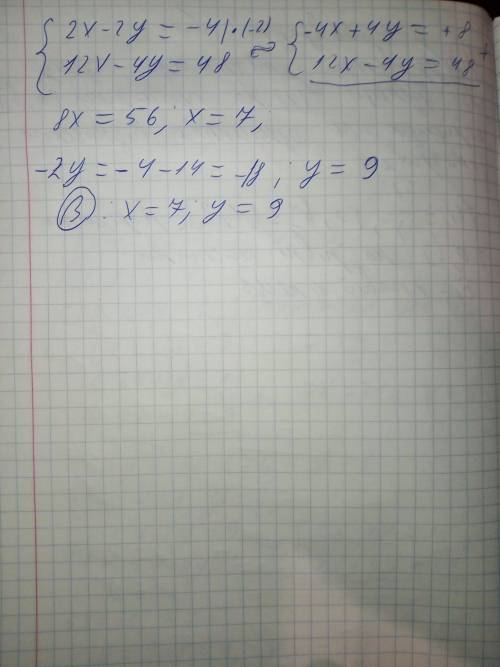 { 2x-2y = -4 | ·(-2) ⇔ { -4x+4y = +8
12x-4y = 48 12x-4y = 48 +
8x = 56; x = 7;
-2y = -4-14 = -18; y = 9
В: x = 7; y = 9